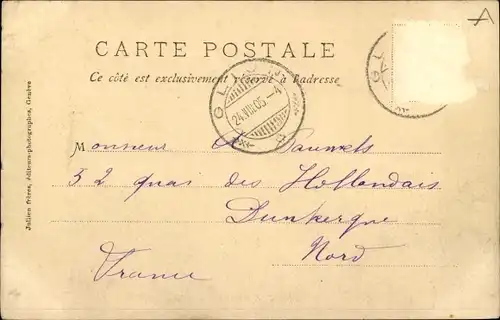 CARTE POSTALE
Ce côté est exclusivement réservé à l'adresse
24.VIII.05-4
Monsieur A Pauwels
32 quai des Hollandais
Dunkerque
Nord
France
Jullien frères, éditeurs-photographes, Genève